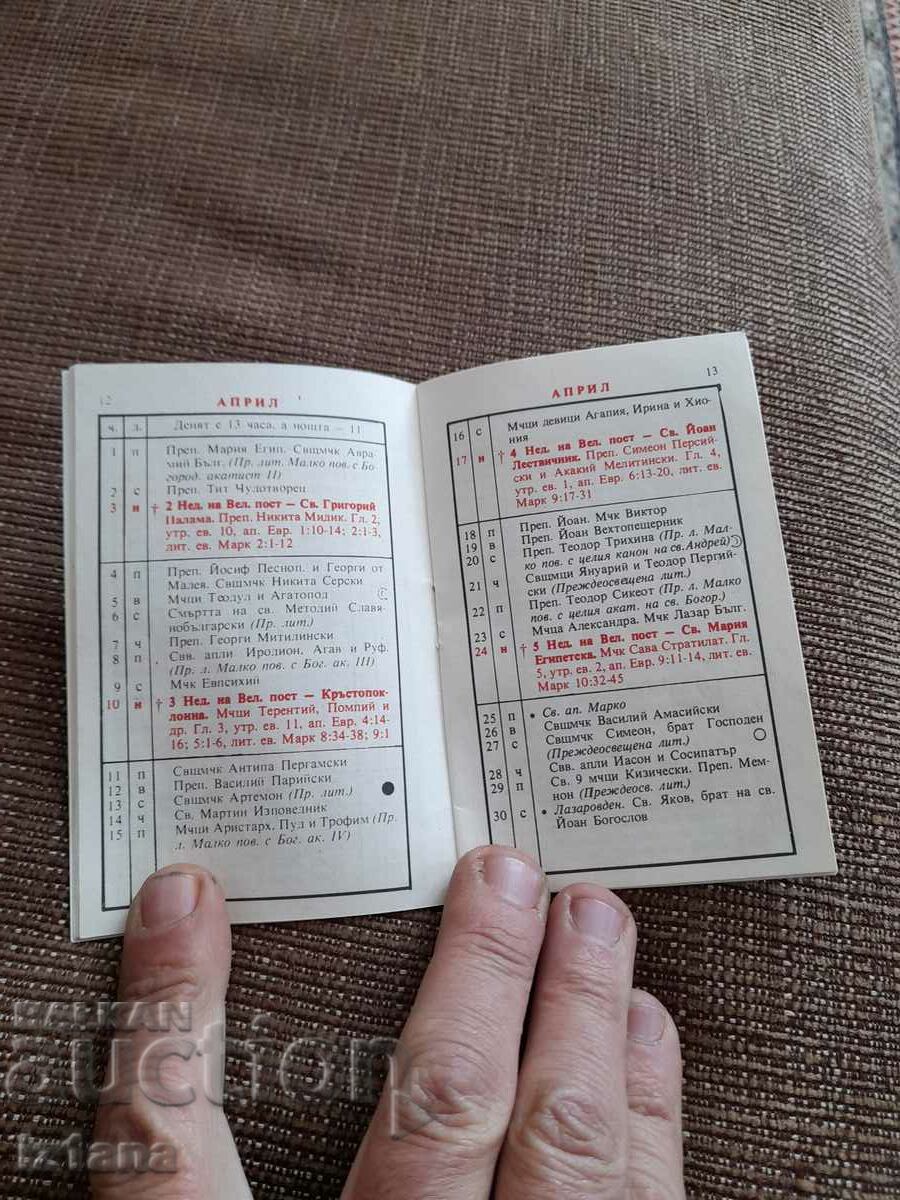 12
АПРИЛ
ч. д. Денят с 13 часа, а нощта — 11
1 п Преп. Мария Егип. Свщмчк Авра-
мий Бълг. (Пр. лит. Малко пов. с Бо-
город. акатист II)
2 с Преп. Тит Чудотворец
3 н † 2 Нед. на Вел. пост — Св. Григорий
Палама. Преп. Никита Мидик. Гл. 2,
утр. ев. 10, ап. Евр. 1:10-14; 2:1-3,
лит. ев. Марк 2:1-12
4 п Преп. Йосиф Песноп. и Георги от
Малея. Свщмчк Никита Серски
5 в Мчци Теодул и Агатопод
6 с Смъртта на св. Методий Славя-
нобългарски (Пр. лит.)
7 ч Преп. Георги Митилински
8 п Свв. апли Иродион, Агав и Руф.
(Пр. л. Малко пов. с Бог. ак. III)
9 с Мчк Евпсихий
10 н † 3 Нед. на Вел. пост — Кръстопок-
лонна. Мчци Терентий, Помпий и
др. Гл. 3, утр. ев. 11, ап. Евр. 4:14-
16; 5:1-6, лит. ев. Марк 8:34-38; 9:1
11 п Свщмчк Антипа Пергамски
12 в Преп. Василий Парийски
13 с Свщмчк Артемон (Пр. лит.)
14 ч Св. Мартин Изповедник
15 п Мчци Аристарх, Пуд и Трофим (Пр.
л. Малко пов. с Бог. ак. IV)
13
АПРИЛ
16 с Мчци девици Агапия, Ирина и Хио-
ния
17 н † 4 Нед. на Вел. пост — Св. Йоан
Лествичник. Преп. Симеон Персий-
ски и Акакий Мелитински. Гл. 4,
утр. ев. 1, ап. Евр. 6:13-20, лит. ев.
Марк 9:17-31
18 п Преп. Йоан. Мчк Виктор
19 в Преп. Йоан Вехтопещерник
20 с Преп. Теодор Трихина (Пр. л. Мал-
ко пов. с целия канон на св.Андрей)
21 ч Свщмци Януарий и Теодор Пергий-
ски (Преждеосвещена лит.)
22 п Преп. Теодор Сикеот (Пр. л. Малко
пов. с целия акат. на св. Богор.)
23 с Мчца Александра. Мчк Лазар Бълг.
24 н † 5 Нед. на Вел. пост — Св. Мария
Египетска. Мчк Сава Стратилат. Гл.
5, утр. ев. 2, ап. Евр. 9:11-14, лит. ев.
Марк 10:32-45
25 п • Св. ап. Марко
26 в Свщмчк Василий Амасийски
27 с Свщмчк Симеон, брат Господен
(Преждеосвещена лит.)
28 ч Свв. апли Иасон и Сосипатър
29 п Св. 9 мчци Кизически. Преп. Мем-
нон (Преждеосв. лит.)
30 с • Лазаровден. Св. Яков, брат на св.
Йоан Богослов
BALKAN
auction
iziana